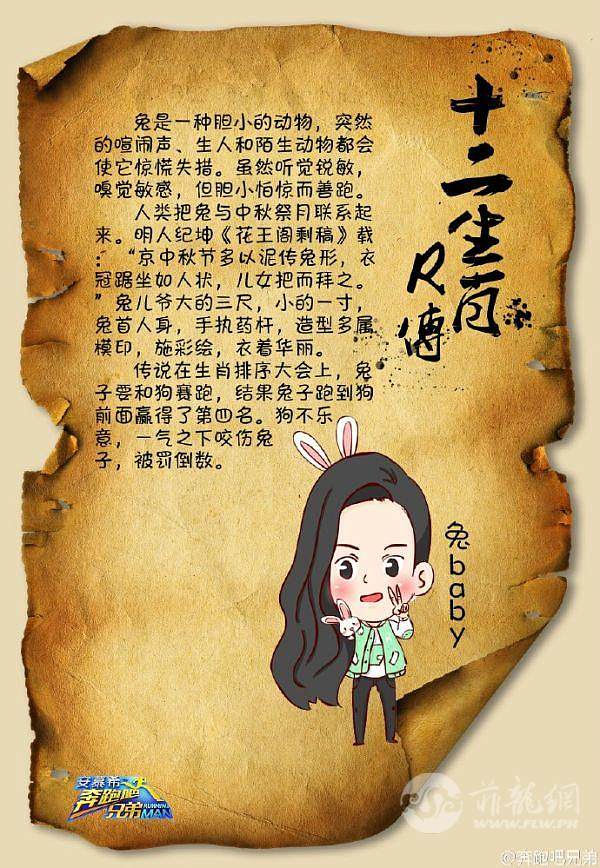 十二生肖
R傳
兔是一种胆小的动物，突然
的喧闹声、生人和陌生动物都会
使它惊慌失措。虽然听觉锐敏，
嗅觉敏感，但胆小怕惊而善跑。
人类把兔与中秋祭月联系起
来。明人纪坤《花王阁剩稿》载
：“京中秋节多以泥传兔形，衣
冠踞坐如人状，儿女把而拜之。
”兔儿爷大的三尺，小的一寸，
兔首人身，手执药杆，造型多属
模印，施彩绘，衣着华丽。
传说在生肖排序大会上，兔
子要和狗赛跑，结果兔子跑到狗
前面赢得了第四名。狗不乐
意，一气之下咬伤兔
子，被罚倒数。
兔baby
安慕希
奔跑吧
兄弟
RUNNING MAN
菲龍網
WWW.FLW.PH
@奔跑吧兄弟